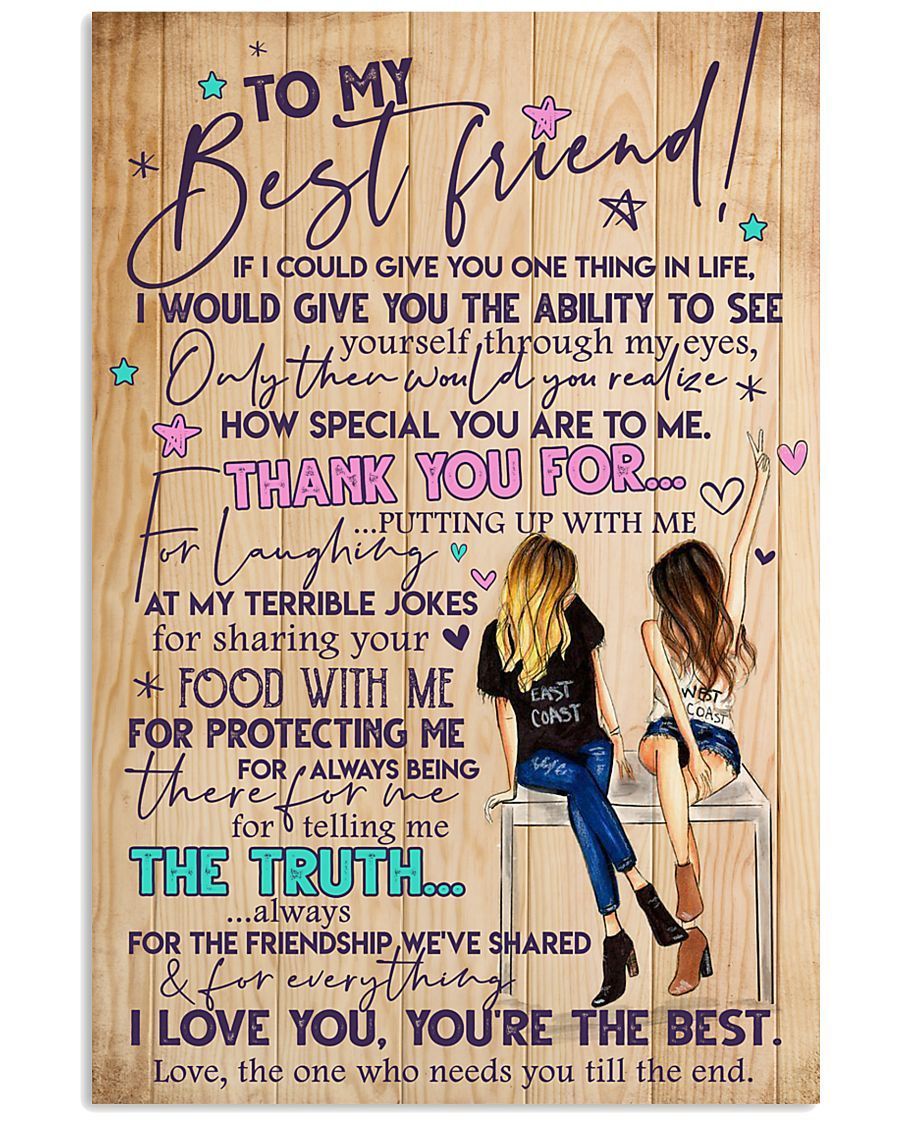 TO MY
Best friend!
IF I COULD GIVE YOU ONE THING IN LIFE,
I WOULD GIVE YOU THE ABILITY TO SEE
yourself through my eyes,
Only then would you realize
HOW SPECIAL YOU ARE TO ME.
THANK YOU FOR...
...PUTTING UP WITH ME
For laughing
AT MY TERRIBLE JOKES
for sharing your
FOOD WITH ME
FOR PROTECTING ME
FOR ALWAYS BEING
there for me
for telling me
THE TRUTH...
...always
FOR THE FRIENDSHIP WE'VE SHARED
& for everything
I LOVE YOU, YOU'RE THE BEST.
Love, the one who needs you till the end.
EAST
COAST
WEST
COAST